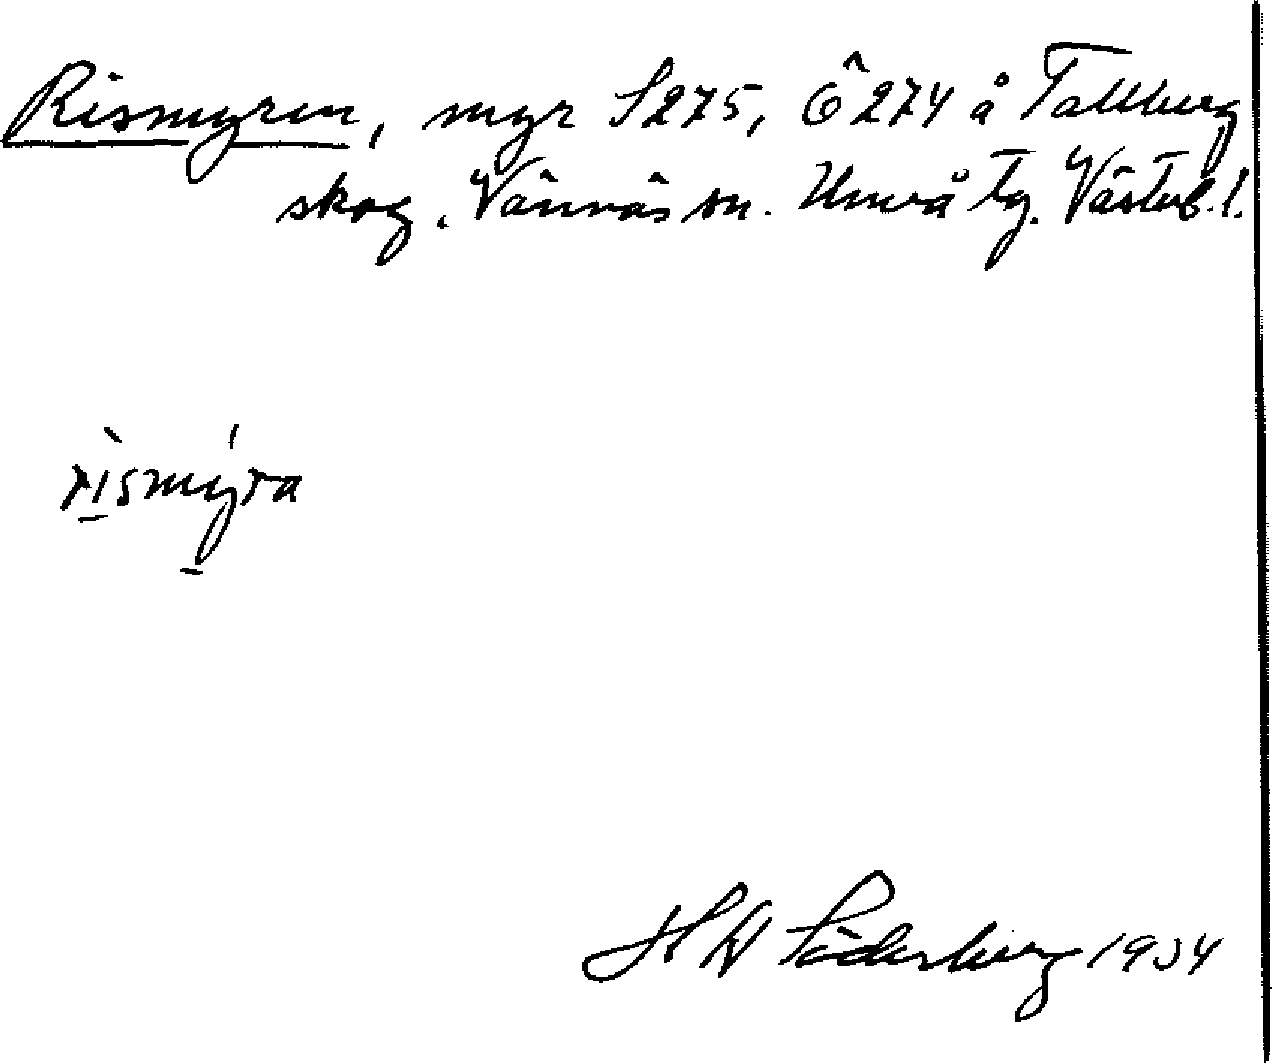 Rismyren, myr S275, Ö274 å Tallberg
skog. Vännäs sn. Umeå tg. Västerb. l.
rìsmýra
H W Söderberg 1934